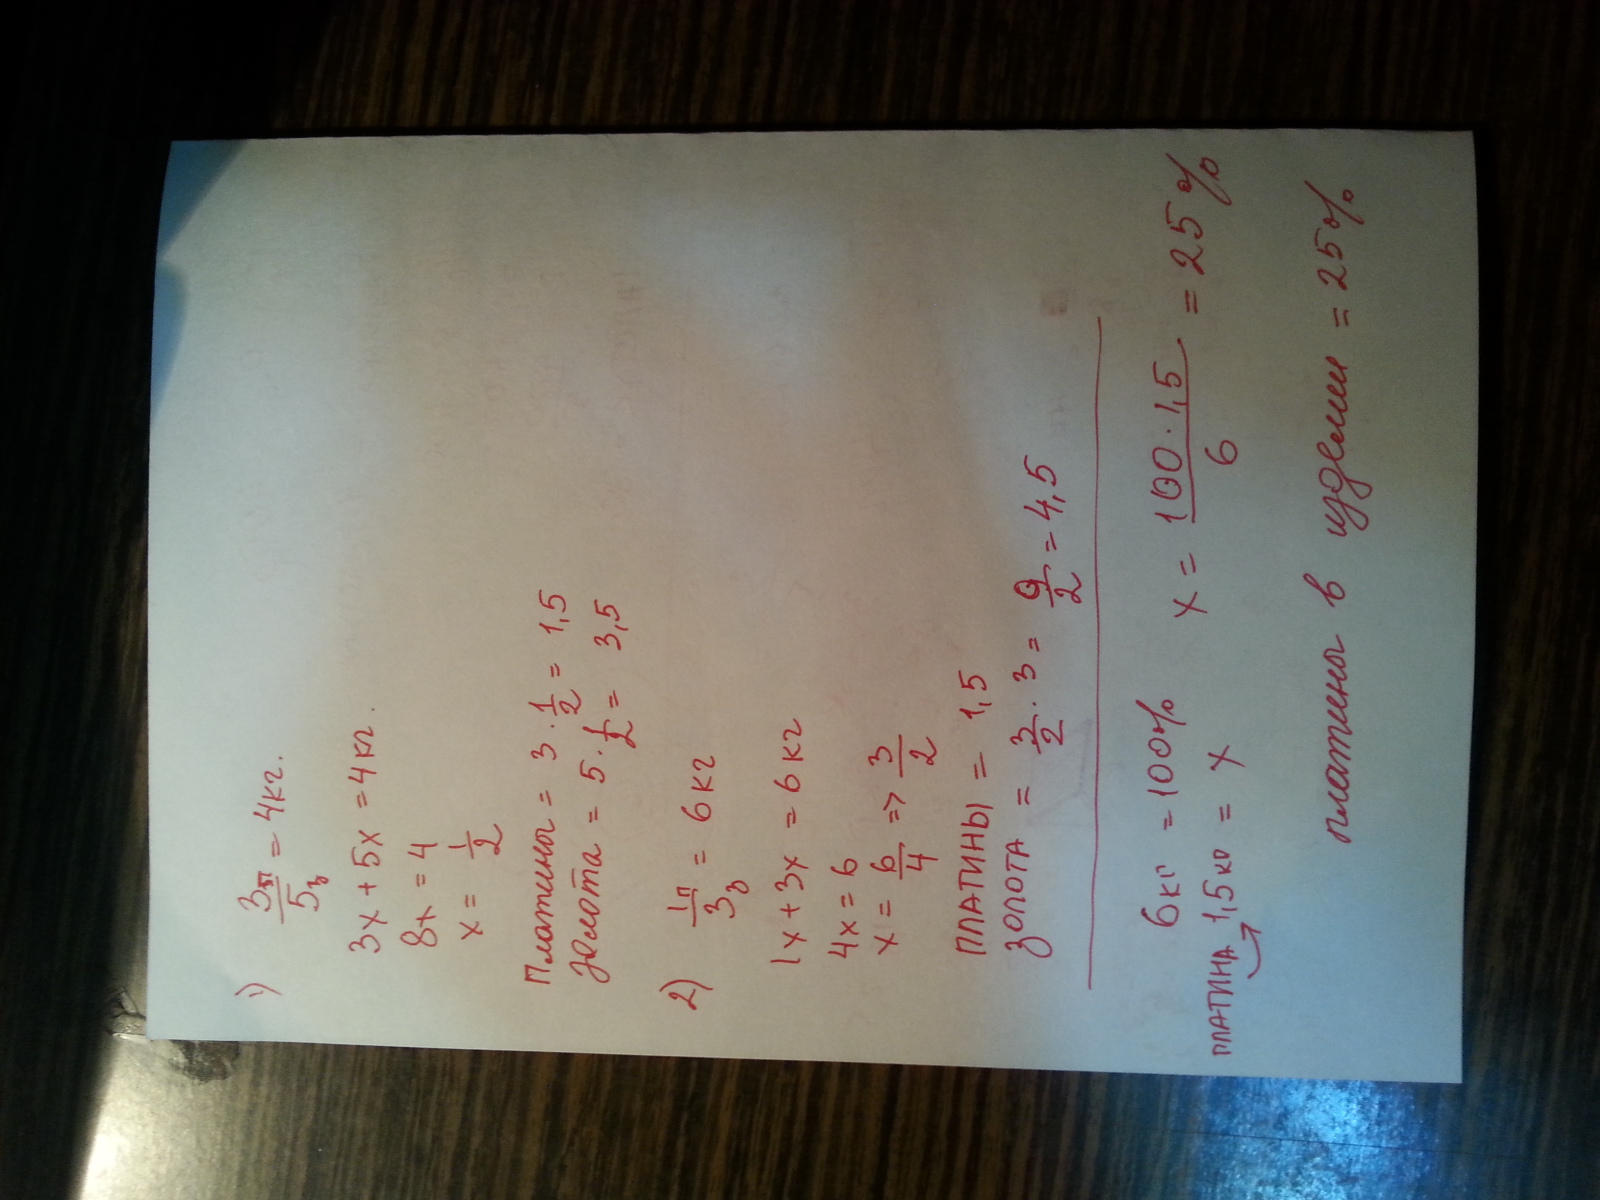 1) 3п/5з = 4кг.
3x + 5x = 4кг.
8x = 4
x = 1/2
Платины = 3 · 1/2 = 1,5
Золота = 5 · 1/2 = 3,5
2) 1п/3з = 6кг
1x + 3x = 6кг
4x = 6
x = 6/4 => 3/2
ПЛАТИНЫ = 1,5
ЗОЛОТА = 3/2 · 3 = 9/2 = 4,5
6кг = 100% x = 100 · 1,5/6 = 25%
ПЛАТИНА 1,5кг = x
платины в изделии = 25%